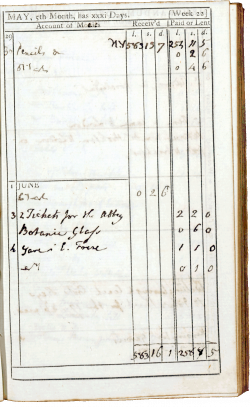 MAY, 5th Month, has xxxi Days. [Week 22]
Account of Receiv'd Paid or Lent
l. s. d. l. s. d.
29 583 13 7 253 11 5
30 Pencils 0 2 6
0 4 6
1 JUNE
0 2 6
3 2 Tickets for the Abbey 2 2 0
Botanic Glass 0 6 0
4 1 1 0
0 1 0
583 16 1 258 8 5